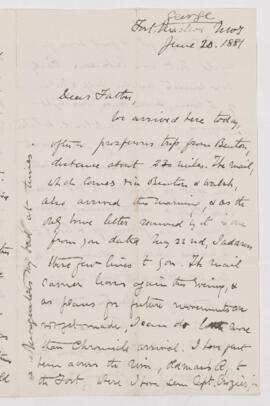 George
Fort Macleod NWT
June 20. 1881
Dear Father,
We arrived here today,
after a prosperous trip from Benton,
distance about 230 miles. The mail,
which comes via Benton &
also arrived this morning, & as the
only home letter received by it is one
from you dated May 22nd, I address
these few lines to you. The mail
carrier leaves again this evening, &
as plans for future movements are
not yet made, I can do little more
than Chronicle arrival. I have just
been across the river, to
the Fort, where I have seen Capt. Crozier,
at times